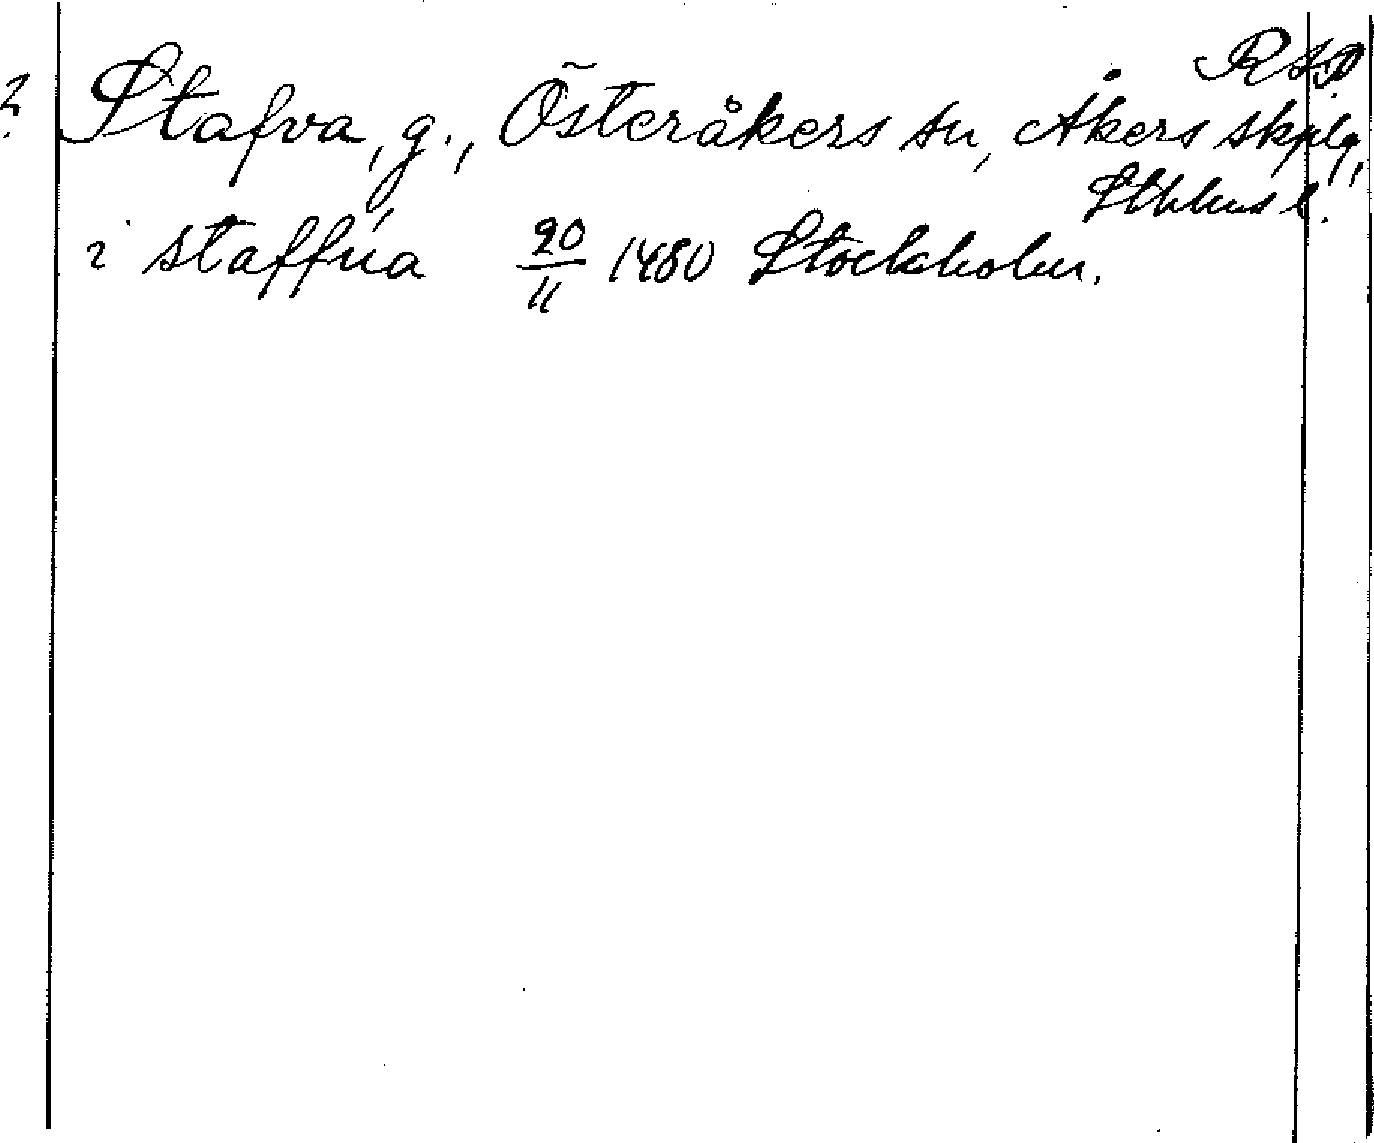 RAP.
? Stafva, g., Österåkers sn, Åkers skplg,
Sthlms l.
i staffua 20/11 1480 Stockholm.